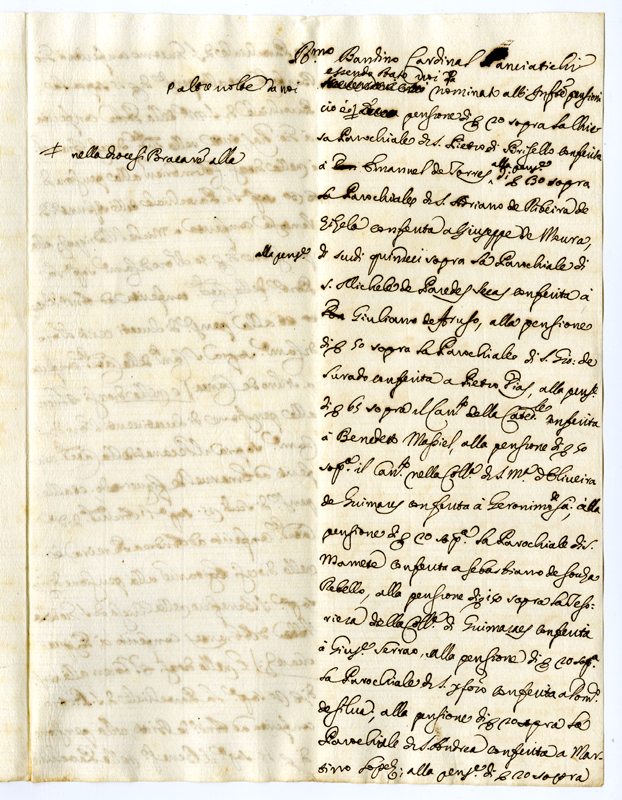 Bmo Bandino Cardinal Panciatichi
essendo stato
p altre volte da noi
nominato alle Infrē pensioni
cioè pensione di ∇ 20 sopra la Chie
sa Parochiale di S. Pietro di conferita
# nella diocesi Bracarē alla
à Emanuel de Torres alla pense di ∇ 30 sopra
la Parochiale di S. Adriano de Ribeira de
conferita a Giuseppe de Meura,
alla pense
di scudi quindeci sopra la Parochiale di
S. Michele de Paredes secas conferita à
Giuliano de Aruso, alla pensione
di ∇ 50 sopra la Parochiale di S. Gio: de
conferita a Pietro Dias, alla pense
di ∇ 65 sopra il Canto della Catedle conferita
à Benedetto Massiel, alla pensione di ∇ 50
sopa il Canto nella Colla di S. Ma d'Oliveira
de Guimares conferita à Geronimo de Sa; alla
pensione di ∇ 20 sopa la Parochiale di S.
Mamete conferita a Sebastiano de Souza
Rebello, alla pensione di sopra la Teso-
riera della Colla di Guimaraes conferita
à Giuse Serrao, alla pensione di ∇ 20 sopa
la Parochiale di S. conferita a Domo
de Silva, alla pensione di ∇ 20 sopra la
Parochiale di S. Andrea conferita a Mar-
tino Lopez; alla pense di ∇ 20 sopra